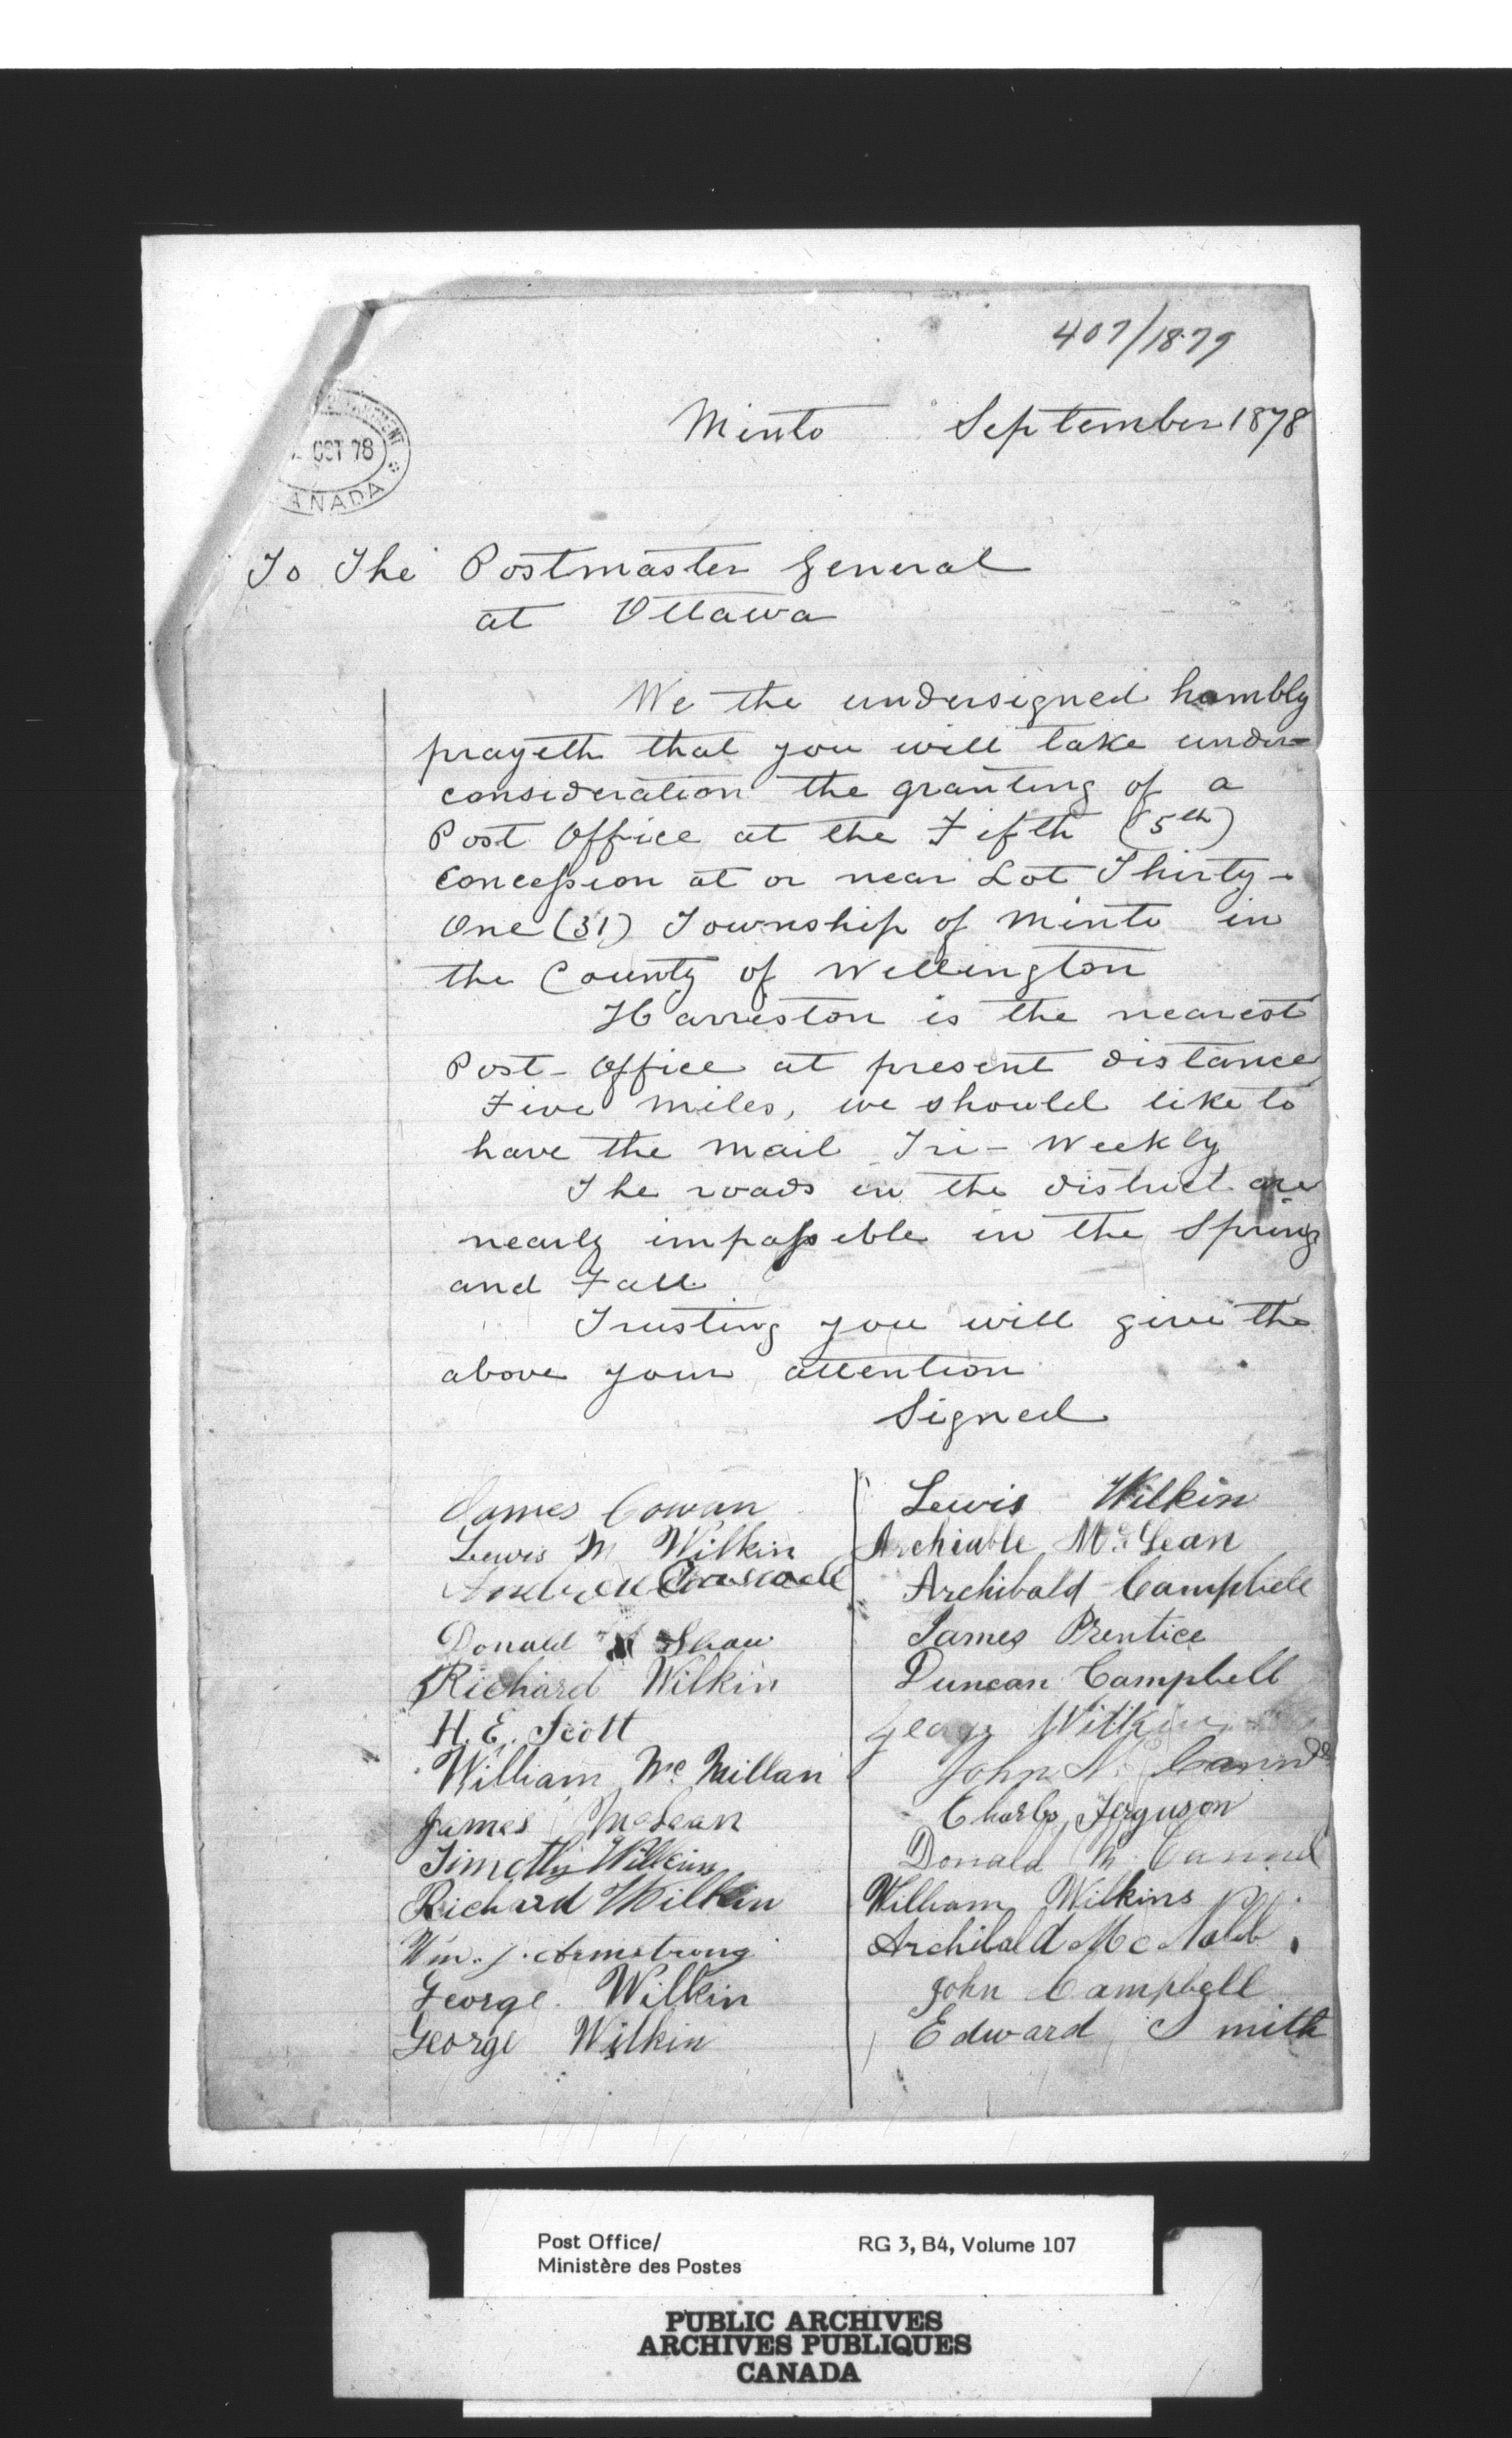 407/1879
Minto September 1878
OCT 78
CANADA
To The Postmaster General
at Ottawa
We the undersigned hambly
prayeth that you will take under-
consideration the granting of a
Post Office at the Fifth (5th)
Concession at or near Lot Thirty-
One (31) Township of Minto in
the County of Wellington
Harriston is the nearest
Post-Office at present distance
Five miles, we should like to
have the mail Tri-Weekly
The roads in the district are
nearly impassible in the Spring
and Fall
Trusting you will give the
above your attention
Signed
James Cowan
Lewis M Wilkin
Donald Shaw
Richard Wilkin
H. E. Scott
William Mc Millan
James McLean
Timothy Wilkins
Richard Wilkin
Wm. J. Armstrong
George Wilkin
George Wilkin
Lewis Wilkin
Archiable McLean
Archibald Campbell
James Prentice
Duncan Campbell
George Wilkin
John
Charles Ferguson
Donald
William Wilkins
Archibald McNabb
John Campbell
Edward Smith
Post Office/
Ministère des Postes
RG 3, B4, Volume 107
PUBLIC ARCHIVES
ARCHIVES PUBLIQUES
CANADA